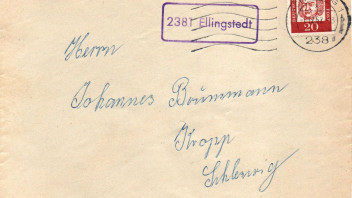 2381 Ellingstedt
20
238
Herrn
Johannes Brummann
Kropp
Schleswig